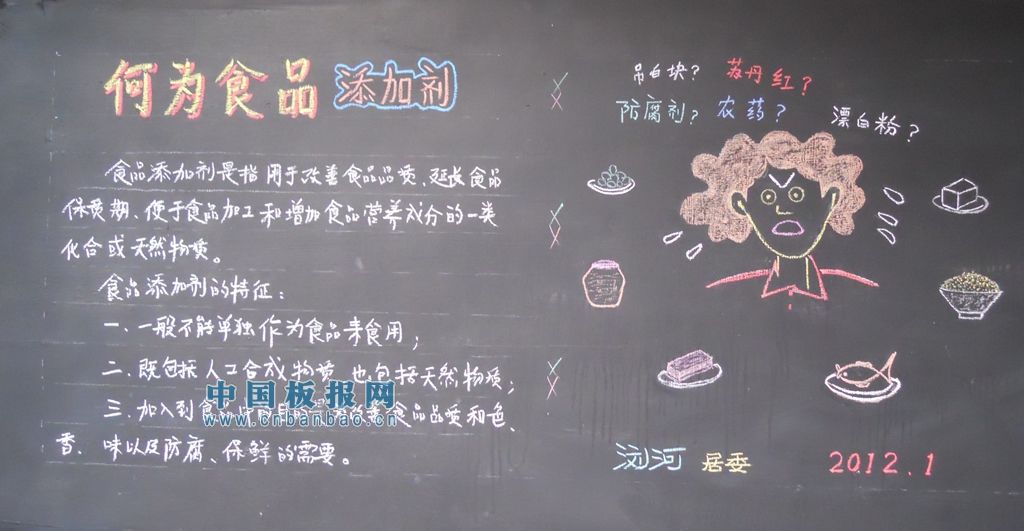 何为食品添加剂
食品添加剂是指用于改善食品品质、延长食品
保质期、便于食品加工和增加食品营养成分的一类
化合或天然物质。
食品添加剂的特征:
一、一般不能单独作为食品来食用;
二、既包括人工合成物质 也包括天然物质;
三、加入到食品中 食品品质和色、
香、味以及防腐、保鲜的需要。
中国板报网
www.cnbanbao.cn
吊白块? 苏丹红?
防腐剂? 农药? 漂白粉?
浏河 居委 2012.1